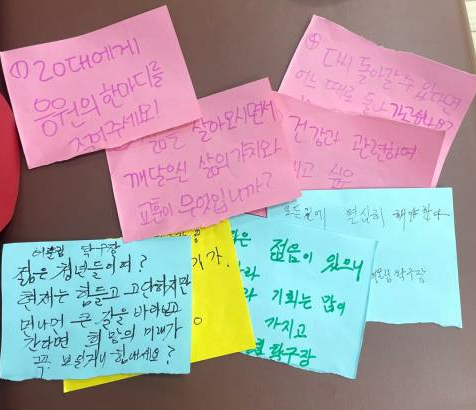 ① 20대에게
응원의 한마디를
적어주세요!
④ 다시 돌아갈 수 있다면
어느 때로 돌아가고싶나요?
살아오시면서
깨달으신 삶의가치와
교훈이 무엇입니까?
건강과 관련하여
싶은
열심히 해야한다
탁구장
어울림 탁구장
젊은 청년들이여?
현재는 힘들고 고단하지만
머나먼 큰 길을 바라보고
간다면 희망의 미래가
꼭 보일거니 힘내세요?
가.
젊음이 있으니
기회는 많이
가지고
탁구장